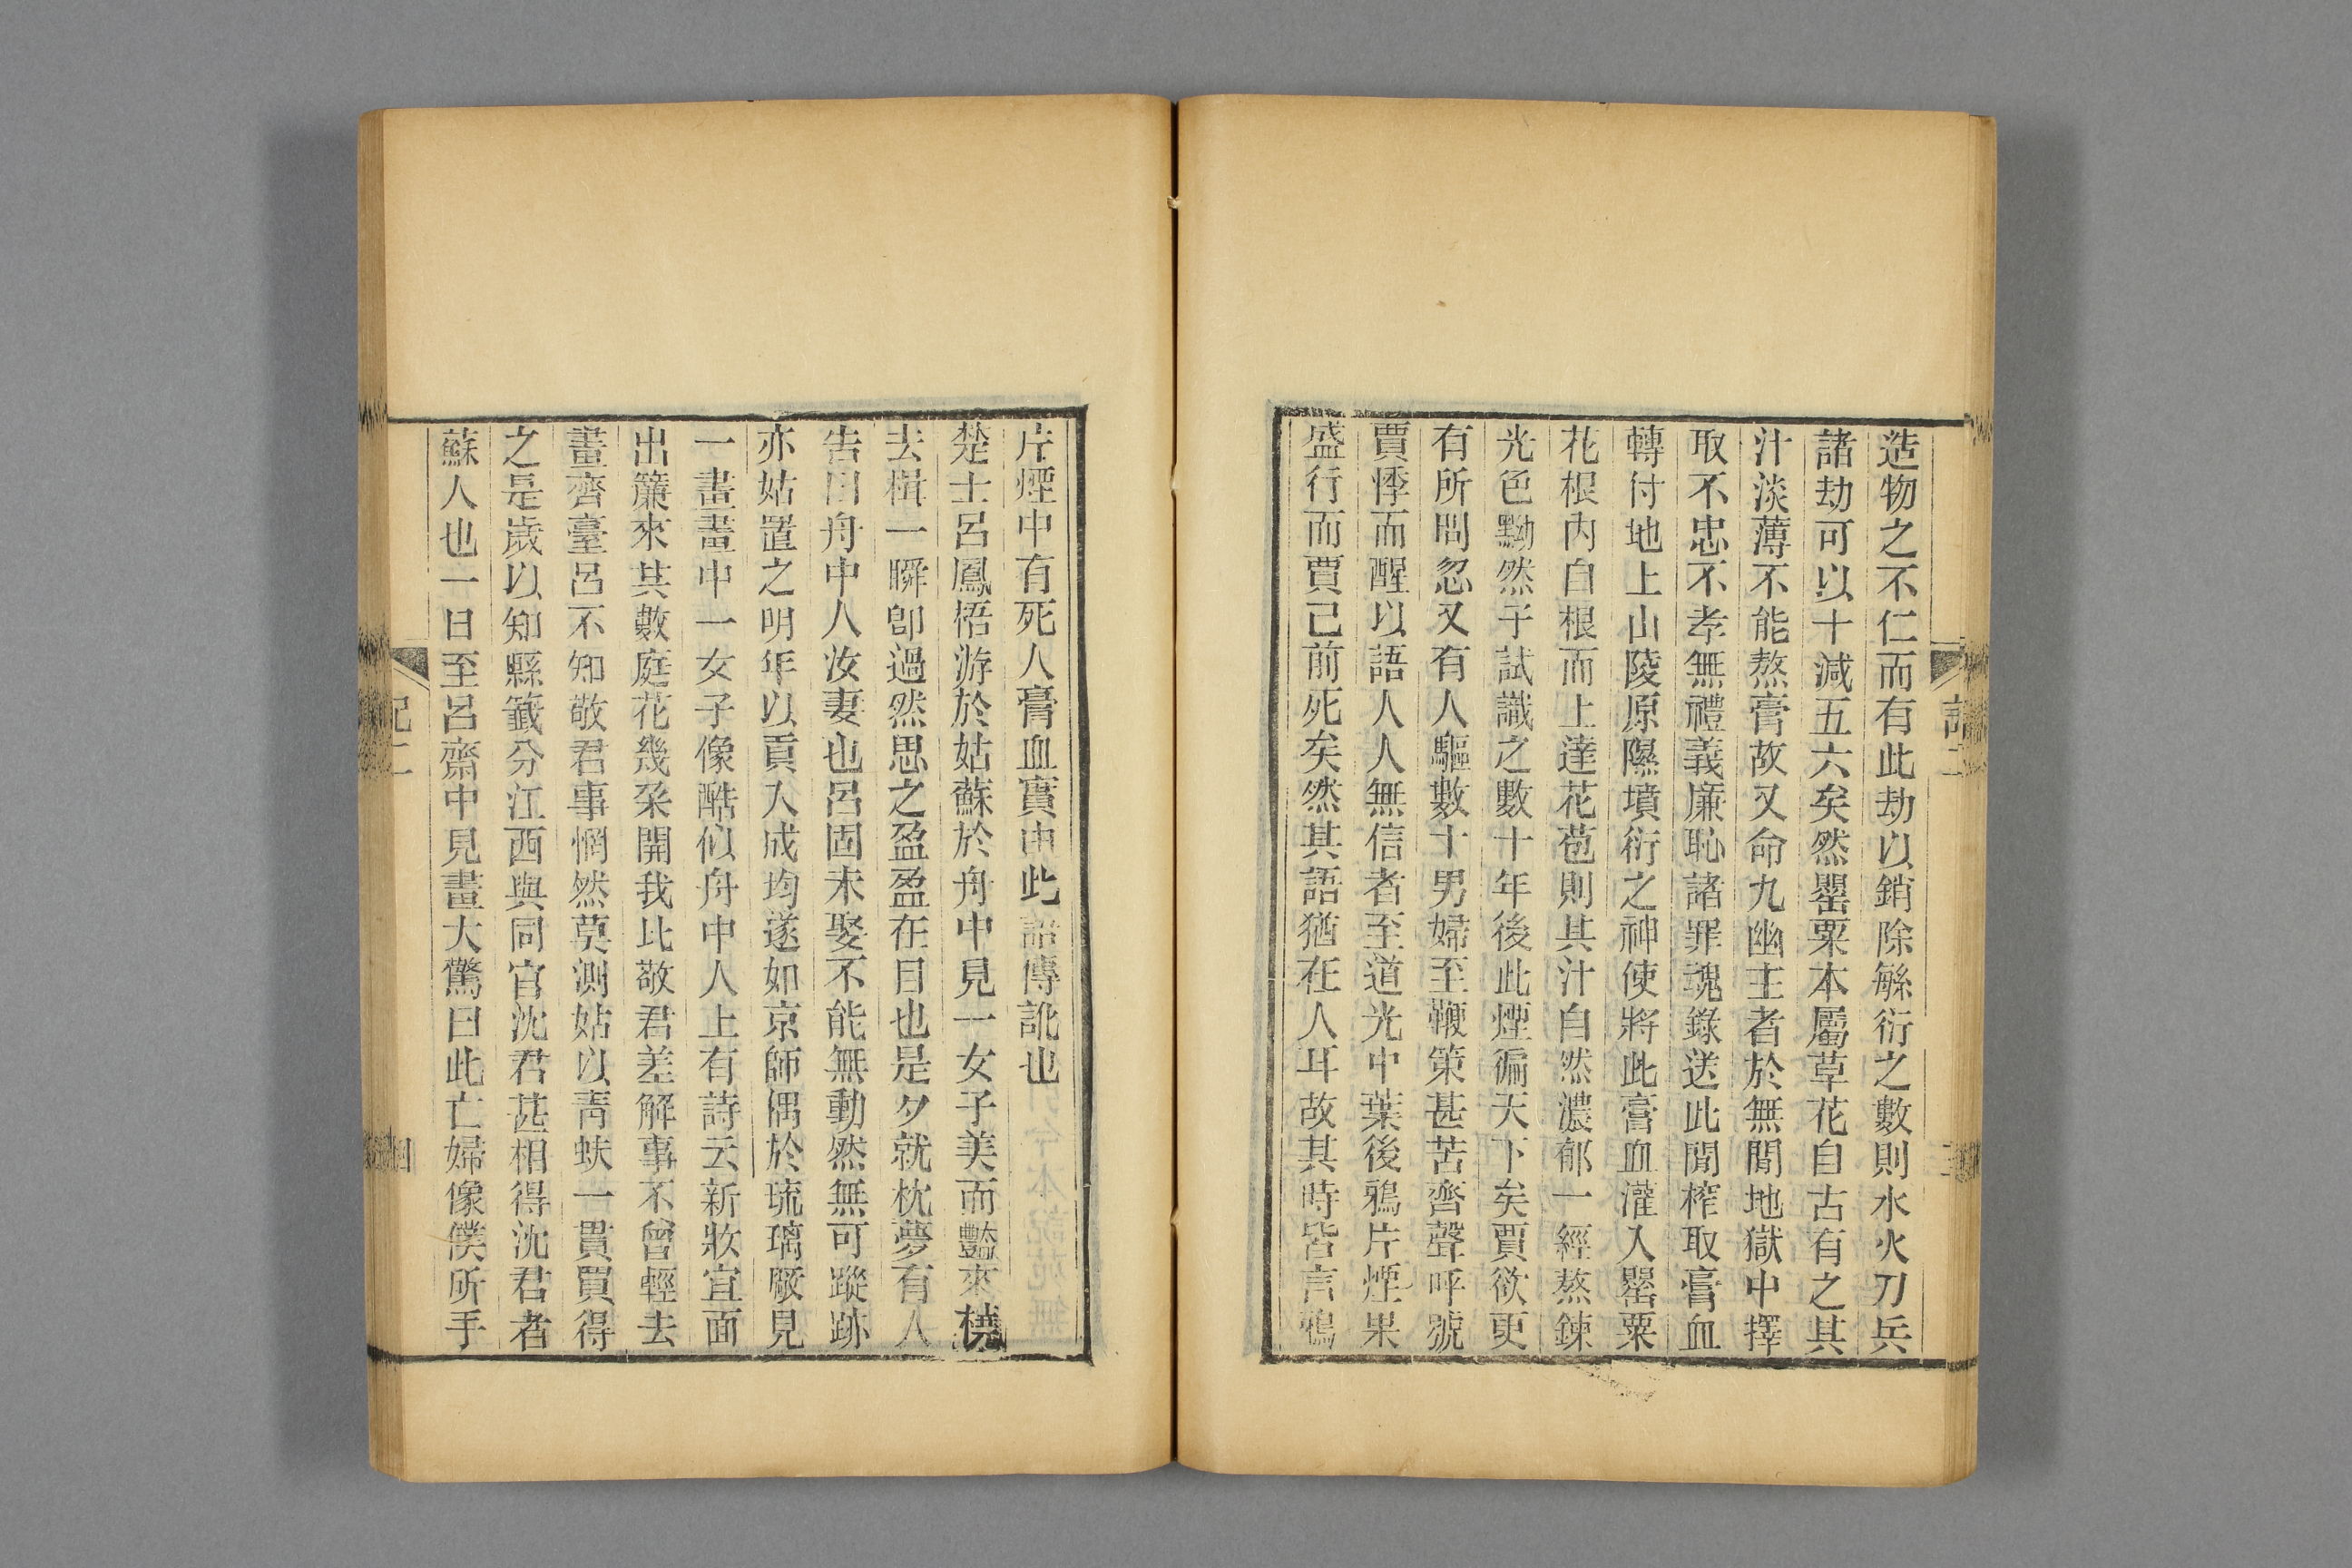 造物之不仁而有此劫以銷除緐衍之數則水火刀兵
諸劫可以十減五六矣然罌粟本屬草花自古有之其
汁淡薄不能熬膏故又命九幽主者於無間地獄中擇
取不忠不孝無禮義廉恥諸罪魂錄送此間榨取膏血
轉付地上山陵原隰墳衍之神使將此膏血灌入罌粟
花根內自根而上達花苞則其汁自然濃郁一經熬鍊
光色黝然子試識之數十年後此煙徧天下矣賈欲更
有所問忽又有人驅數十男婦至鞭策甚苦齊聲呼號
賈悸而醒以語人人無信者至道光中葉後鴉片煙果
盛行而賈已前死矣然其語猶在人耳故其時皆言鴉
片煙中有死人膏血實由此語傳訛也
楚士呂鳳梧游於姑蘇於舟中見一女子美而豔來橈
去楫一瞬卽過然思之盈盈在目也是夕就枕夢有人
告曰舟中人汝妻也呂固未娶不能無動然無可蹤跡
亦姑置之明年以貢入成均遂如京師偶於琉璃厰見
一畫畫中一女子像酷似舟中人上有詩云新妝宜面
出簾來其數庭花幾朶開我比敬君差解事不曾輕去
畫齊臺呂不知敬君事惘然莫測姑以靑蚨一貫買得
之是歲以知縣籤分江西與同官沈君甚相得沈君者
蘇人也一日至呂齋中見畫大驚曰此亡婦像僕所手
記二
四